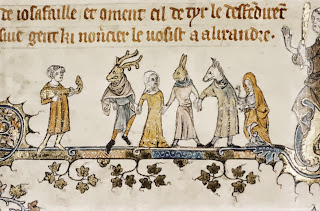 de iosafaille et oment cil de tyr le desfēdirent
sue gent lui nōncier le uosist a alixandre.